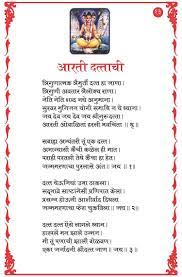 आरती दत्ताची
त्रिगुणात्मक त्रैमुर्ती दत्त हा जाणा ।
त्रिगुणी अवतार त्रैलोक्य राणा ।
नेति नेति शब्द नये अनुमाना ।
सुरवर मुनिजन योगी समाधि न ये ध्याना ।
जय देव जय देव जय श्रीगुरुदत्ता ।
आरती ओवाळितां हरली भवचिंता ॥ धृ ॥
सबाह्य अभ्यंतरी तूं एक दत्त ।
अभाग्यासी कैंची कळेल ही मात ।
पराही परतली तेथे कैंचा हा हेत ।
जन्ममरणाचा पुरलासे अंत ॥ जय ॥ २ ॥
दत्त येऊनियां उभा ठाकला ।
सद्भावे साष्टांगेसी प्रणिपात केला ।
प्रसन्न होऊनी आशीर्वाद दिधला ।
जन्ममरणाचा फेरा चुकविला ॥ जय ॥ ३ ॥
दत्त दत्त ऐसे लागले ध्यान ।
हारपले मन झाले उन्मन ।
मी तूं पणाची झाली बोळवण ।
एका जनार्दनी श्रीदत्त ध्यान ॥ जय ॥